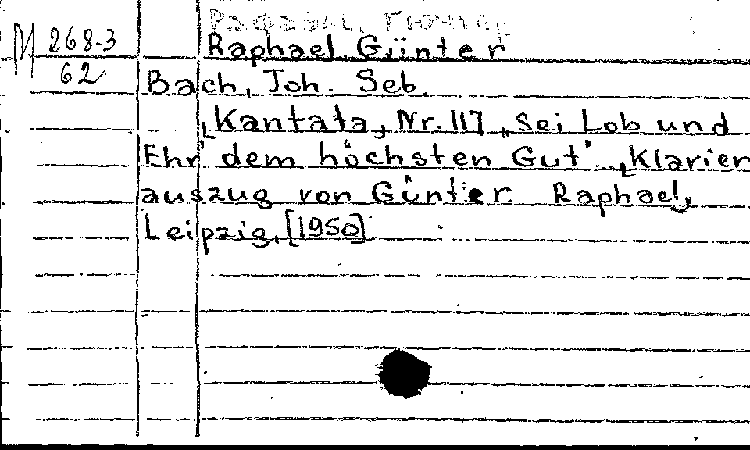 M 268-3
62
Raphael, Günter
Bach, Joh. Seb.
[Kantata, Nr. 117, „Sei Lob und
Ehr' dem höchsten Gut", [Klavier
auszug von Günter Raphael,
Leipzig, [1950]